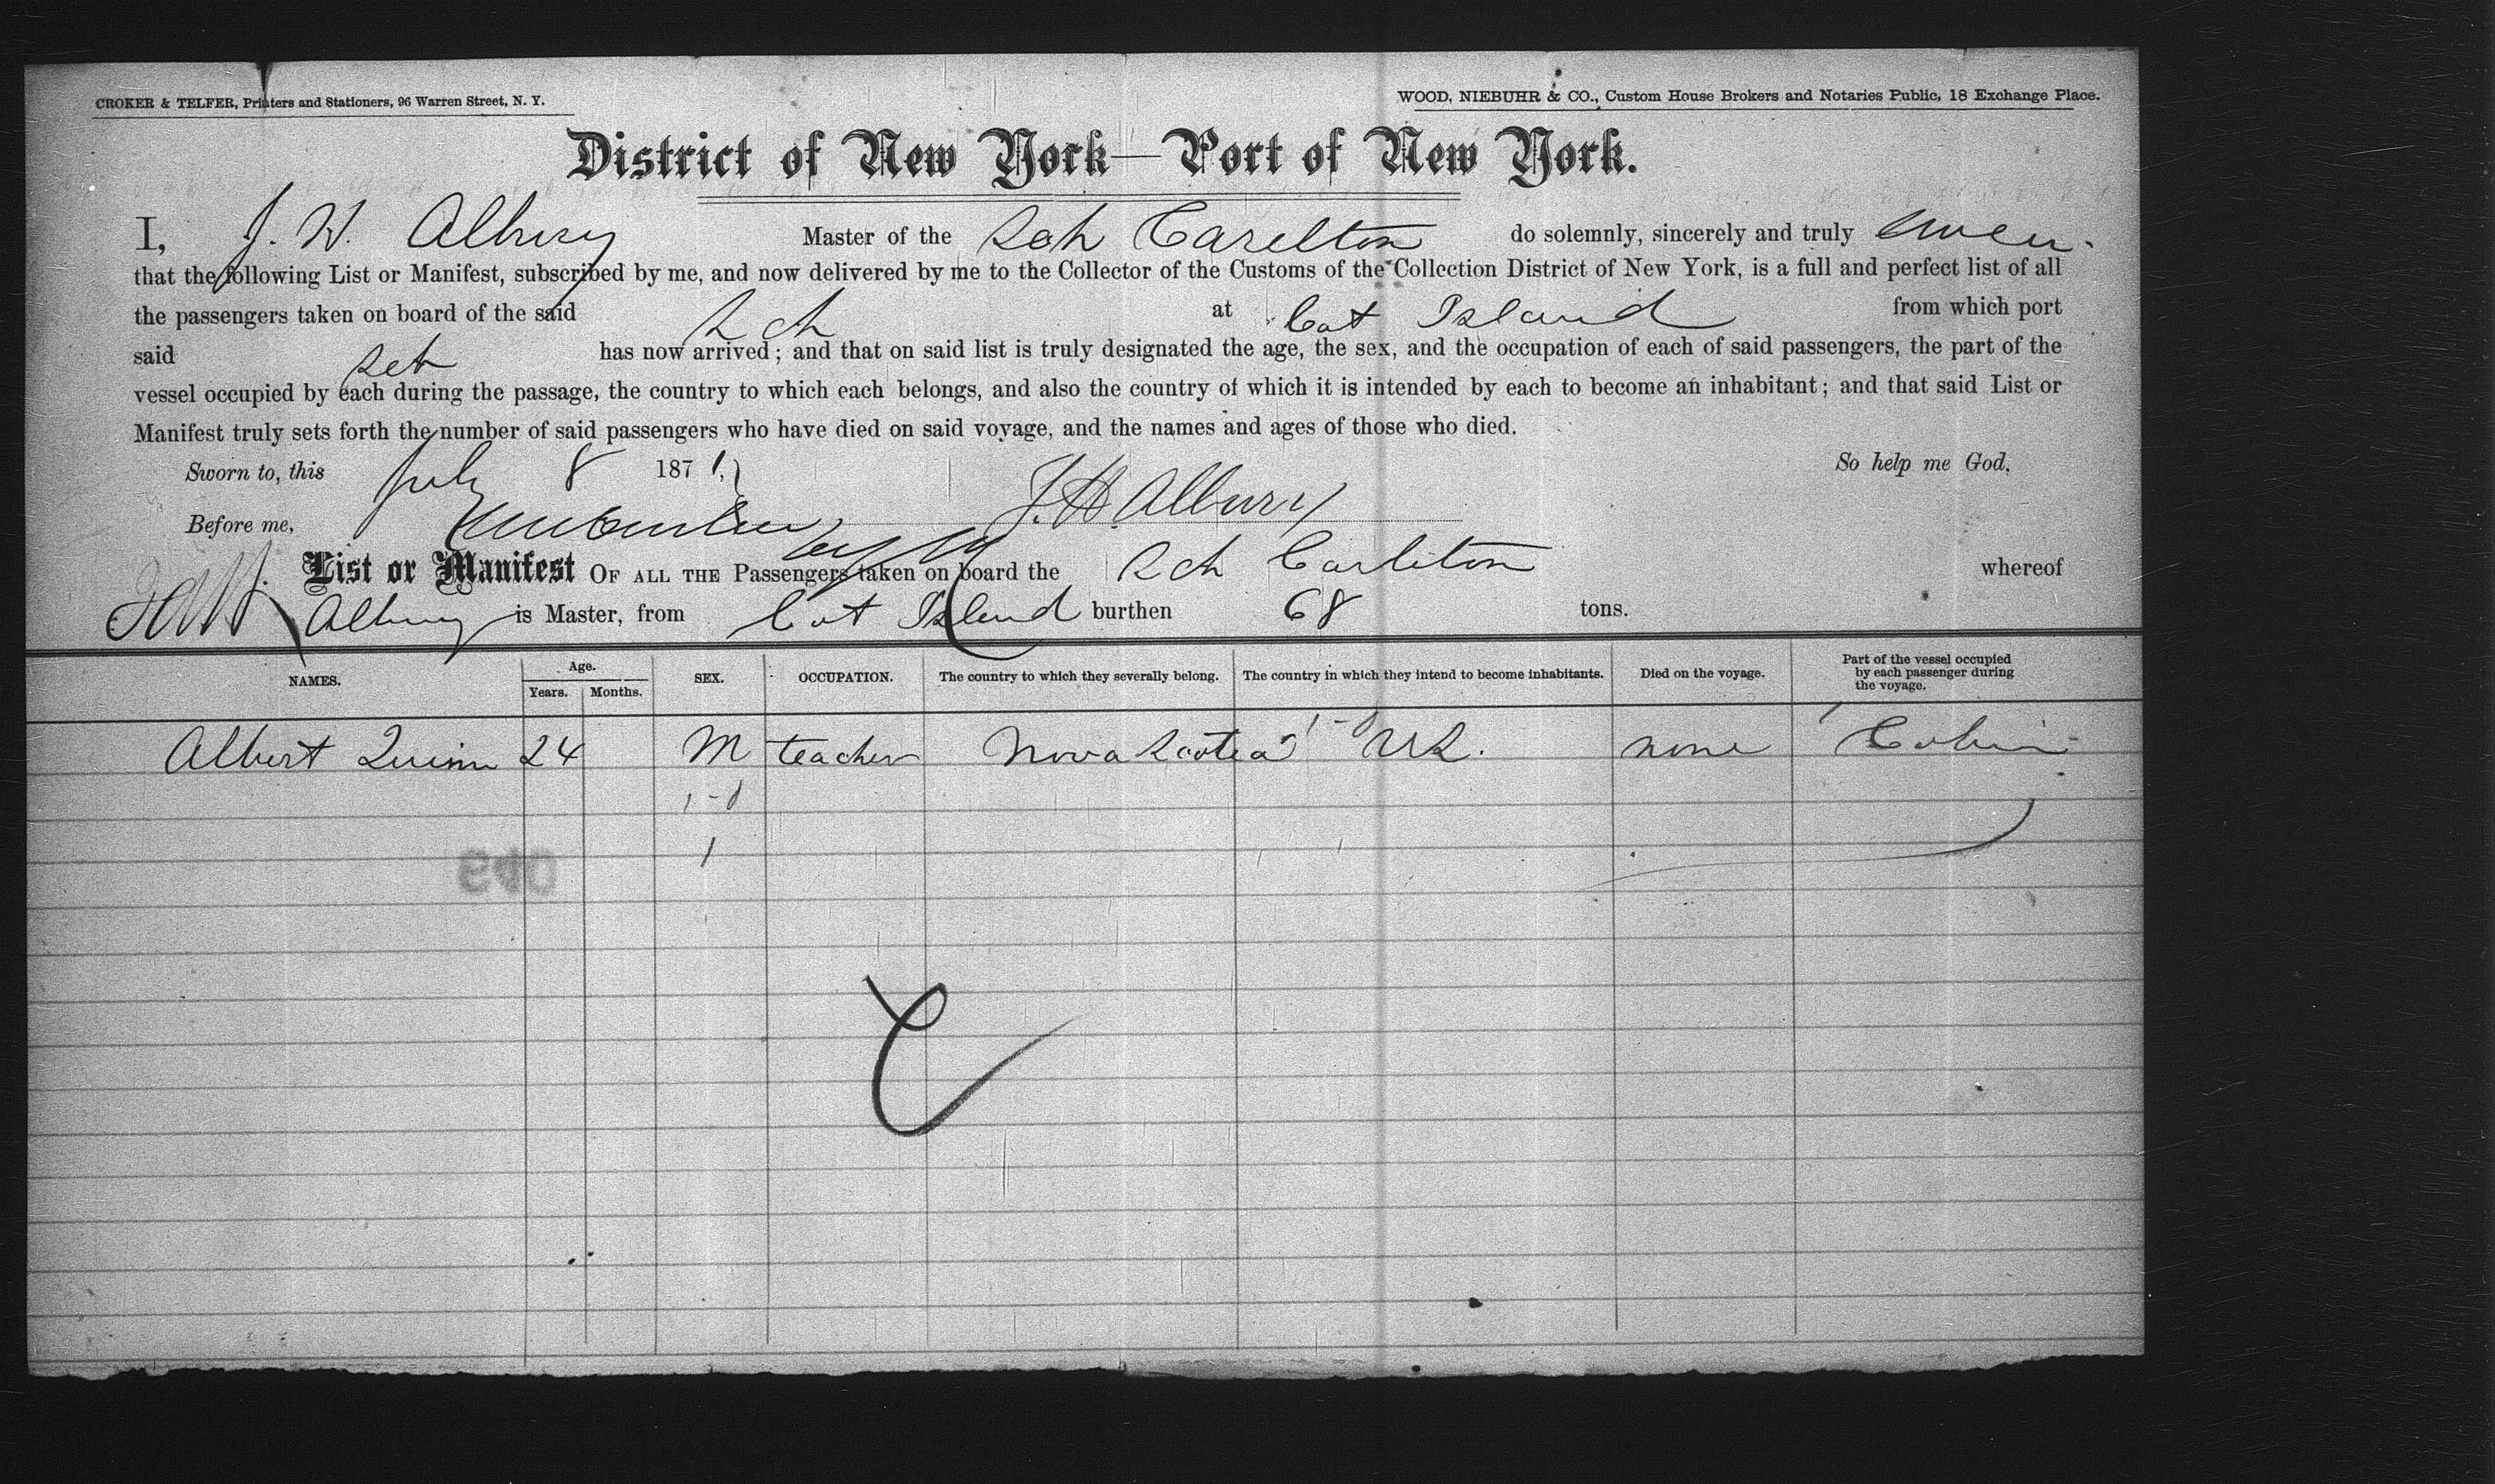 CROKER & TELFER, Printers and Stationers, 96 Warren Street, N. Y.
WOOD, NIEBUHR & CO., Custom House Brokers and Notaries Public, 18 Exchange Place.
District of New York—Port of New York.
I, J. W. Albury Master of the Sch Carelton do solemnly, sincerely and truly swear
that the following List or Manifest, subscribed by me, and now delivered by me to the Collector of the Customs of the Collection District of New York, is a full and perfect list of all
the passengers taken on board of the said Sch at Cat Island from which port
said Sch has now arrived; and that on said list is truly designated the age, the sex, and the occupation of each of said passengers, the part of the
vessel occupied by each during the passage, the country to which each belongs, and also the country of which it is intended by each to become an inhabitant; and that said List or
Manifest truly sets forth the number of said passengers who have died on said voyage, and the names and ages of those who died.
Sworn to, this July 8 1871, So help me God,
Before me, J. H. Albury
List or Manifest OF ALL THE Passengers taken on board the Sch Carleton whereof
Albury is Master, from Cat Island burthen 68 tons.
NAMES. Age. Years. Months. SEX. OCCUPATION. The country to which they severally belong. The country in which they intend to become inhabitants. Died on the voyage. Part of the vessel occupied by each passenger during the voyage.
Albert Quinn 24 M teacher Nova Scotia US. none Cabin
1-0
1